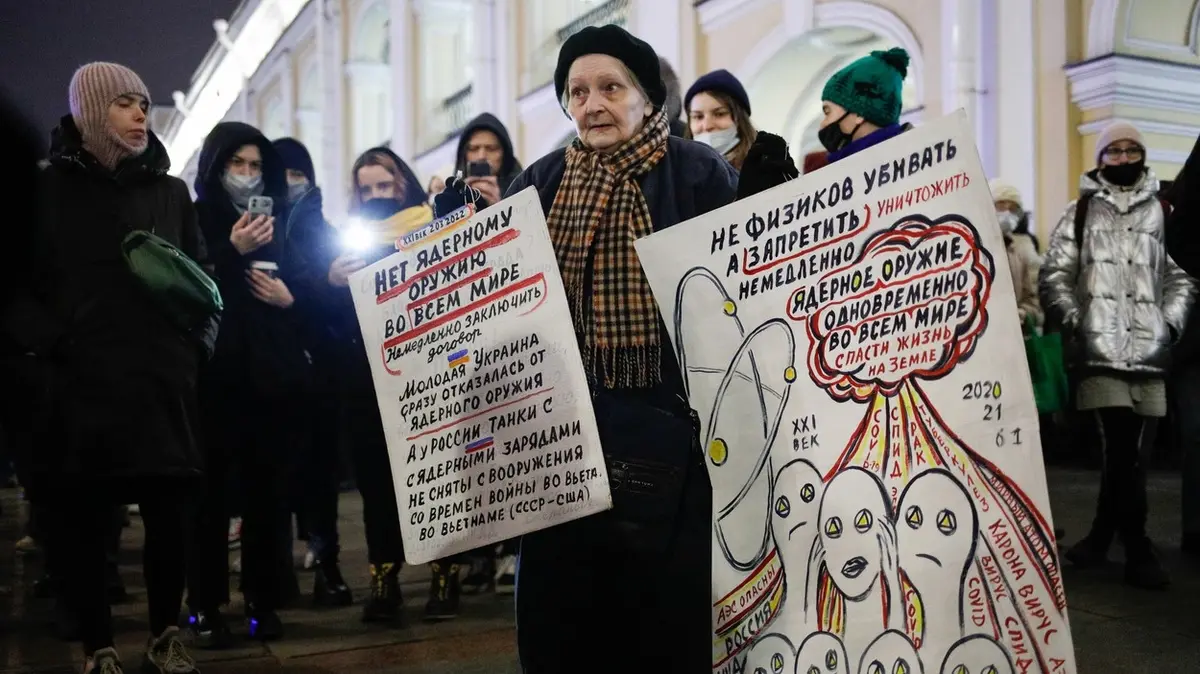 XXI ВЕК 2.03.2022
НЕТ ЯДЕРНОМУ
ОРУЖИЮ
ВО ВСЕМ МИРЕ
НЕМЕДЛЕННО ЗАКЛЮЧИТЬ
ДОГОВОР
МОЛОДАЯ УКРАИНА
СРАЗУ ОТКАЗАЛАСЬ ОТ
ЯДЕРНОГО ОРУЖИЯ
А У РОССИИ ТАНКИ С
С ЯДЕРНЫМИ ЗАРЯДАМИ
НЕ СНЯТЫ С ВООРУЖЕНИЯ
СО ВРЕМЕН ВОЙНЫ ВО ВЬЕТА.
ВО ВЬЕТНАМЕ (СССР-США)
НЕ ФИЗИКОВ УБИВАТЬ
А ЗАПРЕТИТЬ УНИЧТОЖИТЬ
НЕМЕДЛЕННО
ЯДЕРНОЕ ОРУЖИЕ
ОДНОВРЕМЕННО
ВО ВСЕМ МИРЕ
СПАСТИ ЖИЗНЬ
НА ЗЕМЛЕ
2020
21
61
XXI
ВЕК
СПИД
РАК
КАРОНА ВИРУС
ВИРУС СПИД
COVID
АЭС ОПАСНЫ
РОССИЯ